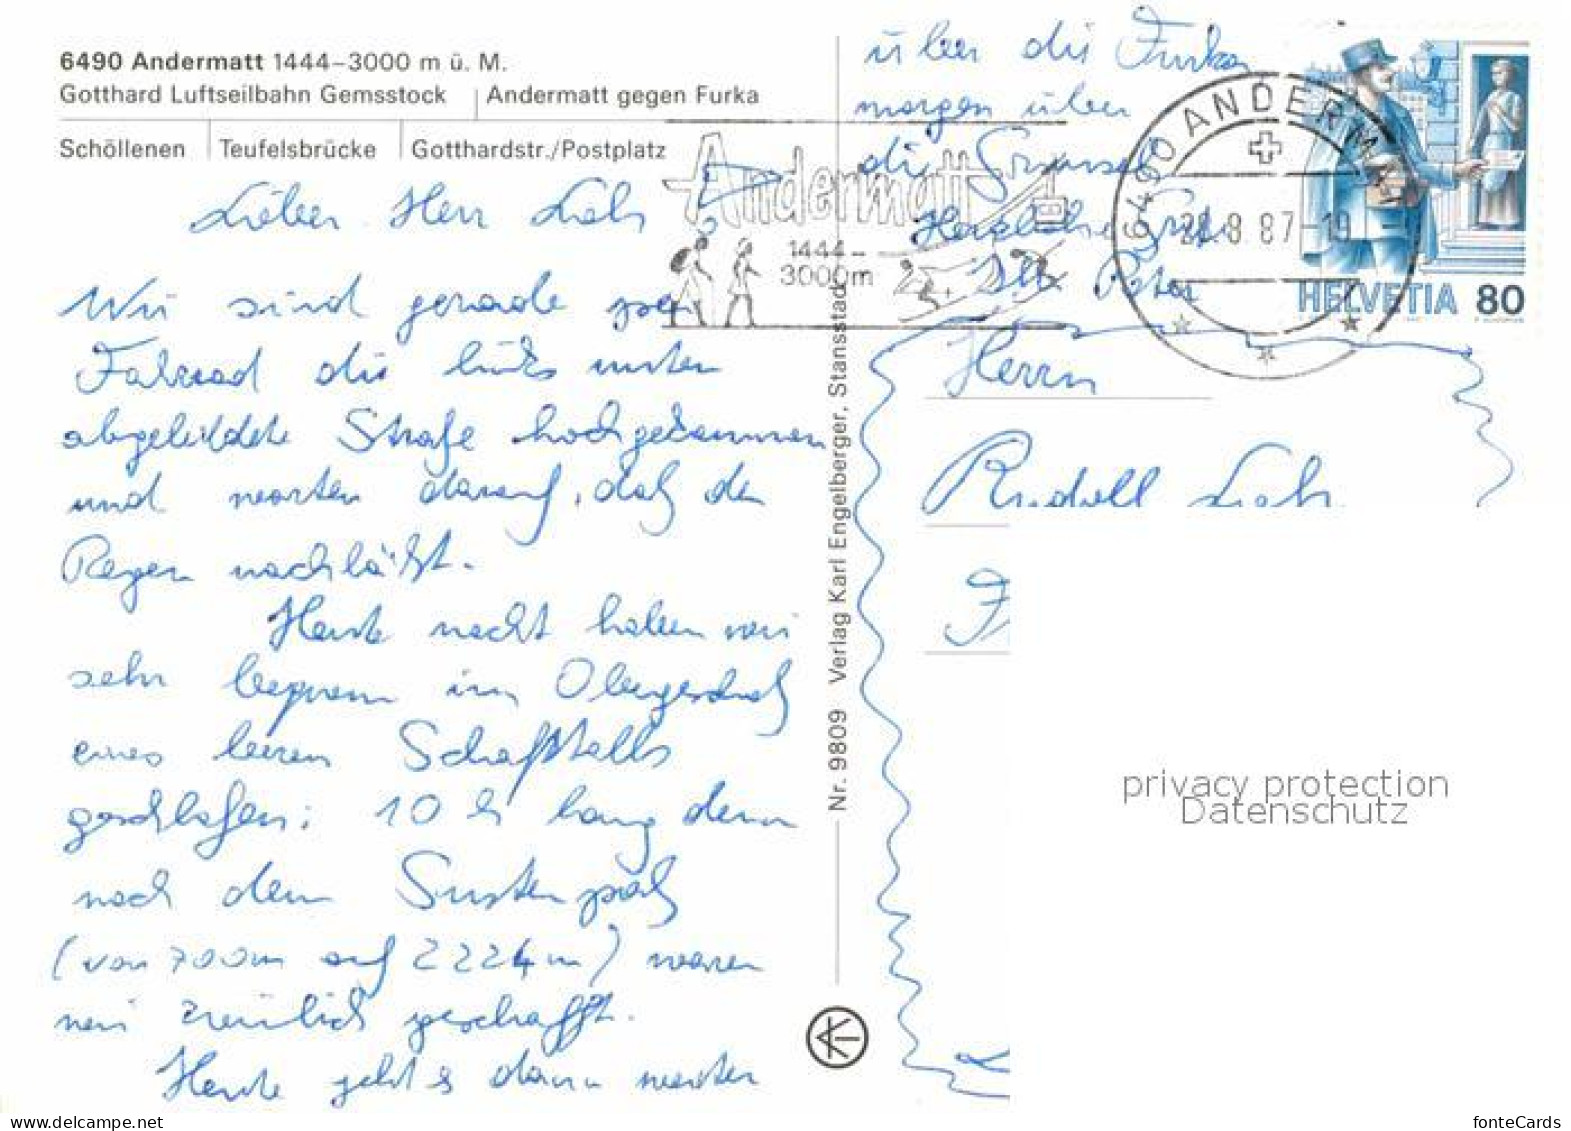 6490 Andermatt 1444–3000 m ü. M.
Gotthard Luftseilbahn Gemsstock | Andermatt gegen Furka
Schöllenen | Teufelsbrücke | Gotthardstr./Postplatz
Lieber Herr
Wir sind gerade per
Fahrrad die links unten
abgebildete Straße hochgekommen
und warten darauf, daß der
Regen nachläßt.
Heute nacht haben wir
sehr bequem im Obergeschoß
eines leeren Schafstalls
geschlafen; 10 h lang denn
nach dem Sustenpaß
(von 700m auf 2224m) waren
wir ziemlich geschafft.
Heute geht's dann weiter
über die Furka,
morgen über
die Grimsel
Herzliche Grüße
Ihr Peter
Herrn
Rudolf
Nr. 9809 Verlag Karl Engelberger, Stansstad
Andermatt
1444–
3000m
6490 ANDERM
8.87
HELVETIA 80
privacy protection
Datenschutz
www.delcampe.net
fonteCards